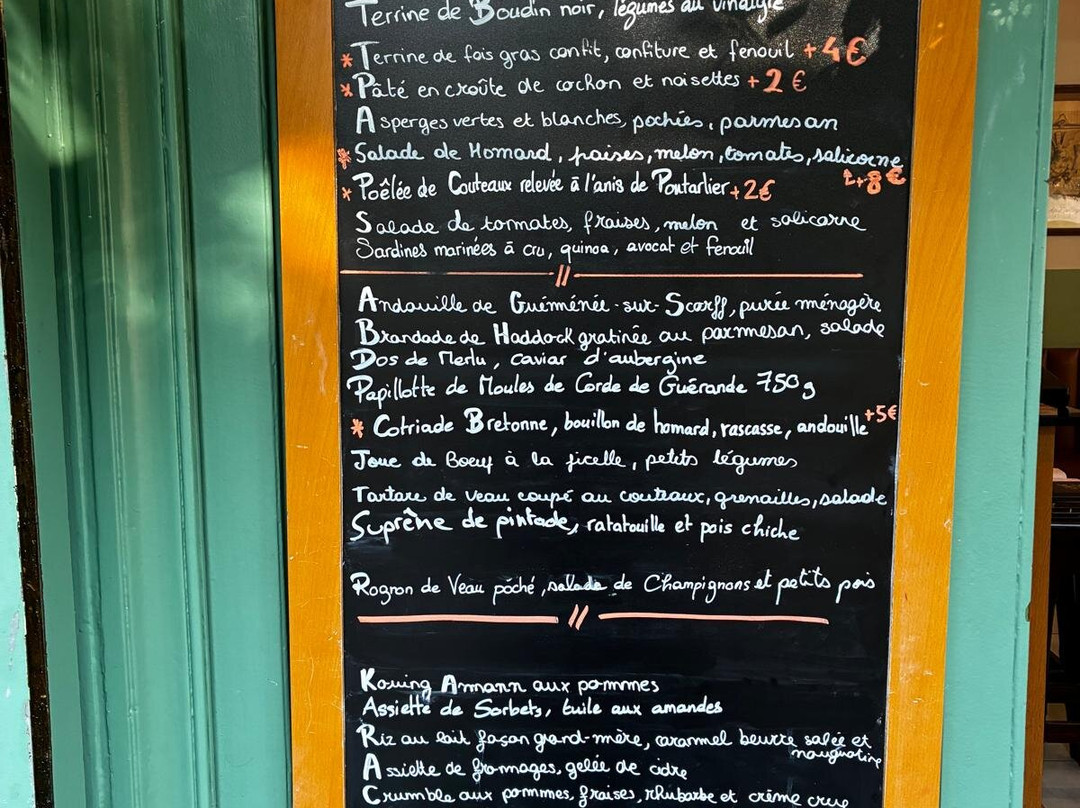 Terrine de Boudin noir, légumes au vinaigre
* Terrine de fois gras confit, confiture et fenouil +4€
* Pâté en croûte de cochon et noisettes +2€
Asperges vertes et blanches, pochées, parmesan
* Salade de Homard, fraises, melon, tomates, salicorne
+8€
* Poêlée de Couteaux relevée à l'anis de Pontarlier +2€
Salade de tomates, fraises, melon et salicorne
Sardines marinées à cru, quinoa, avocat et fenouil
//
Andouille de Guéménée-sur-Scorff, purée ménagère
Brandade de Haddock gratinée au parmesan, salade
Dos de Merlu, caviar d'aubergine
Papillotte de Moules de Corde de Guérande 750g
* Cotriade Bretonne, bouillon de homard, rascasse, andouille +5€
Joue de Boeuf à la ficelle, petits légumes
Tartare de veau coupé au couteaux, grenailles, salade
Suprême de pintade, ratatouille et pois chiche
Rognon de Veau pôché, salade de Champignons et petits pois
//
Kouing Amann aux pommes
Assiette de Sorbets, tuile aux amandes
Riz au lait façon grand-mère, caramel beurre salée et
nougnatine
Assiette de fromages, gelée de cidre
Crumble aux pommes, fraises, rhubarbe et crème crue